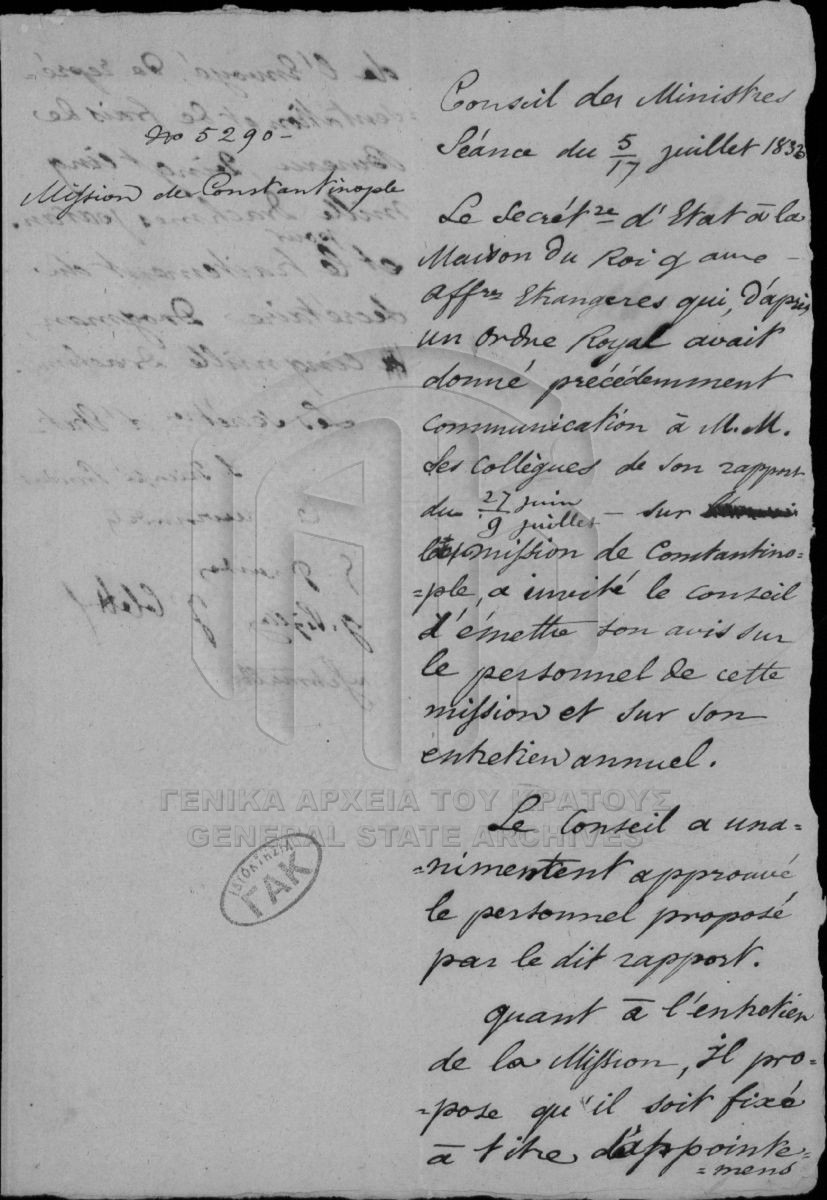 No 5290-
Mission de Constantinople
Conseil des Ministres
Séance du 5/17 juillet 1833
Le Secrét.re d'Etat à la
Maison du Roi &
Aff.res Etrangeres qui, d'après
un Ordre Royal avait
donné précédemment
communication à M.M.
Ses Collègues de son rapport
du 27 juin/9 juillet - sur
mission de Constantino=
=ple, a invité le conseil
d'émettre son avis sur
le personnel de cette
mission et sur son
entretien annuel.
Le Conseil a una=
=nimement approuvé
le personnel proposé
par le dit rapport.
quant à l'entretien
de la Mission, Il pro=
=pose qu'il soit fixé
à titre d'appointe=
=mens
ΓΕΝΙΚΑ ΑΡΧΕΙΑ ΤΟΥ ΚΡΑΤΟΥΣ
GENERAL STATE ARCHIVES
ΙΔΙΟΚΤΗΣΙΑ
ΓΑΚ